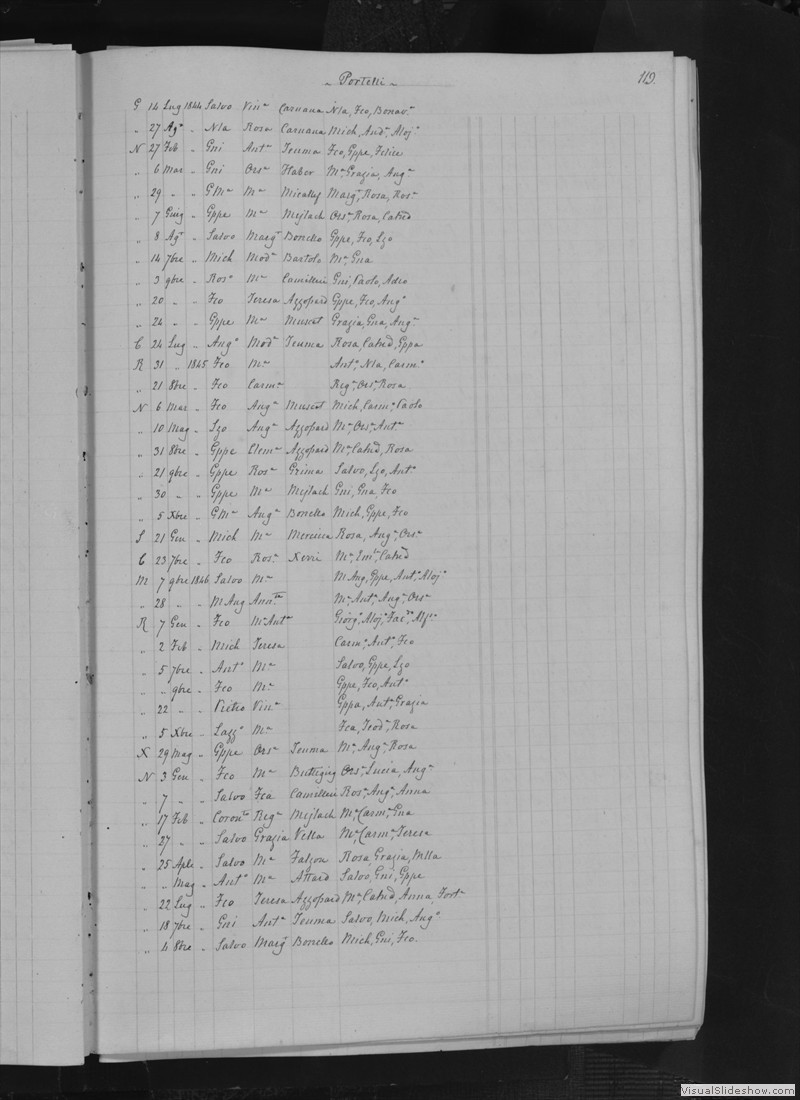 ~ Portelli ~ 119.
G 14 Lug 1844 Salvo Vinᵃ Caruana Nla, Fco, Bonavᵃ
„ 27 Agᵒ „ Nla Rosa Caruana Mich, Andᵃ, Alojᵒ
N 27 Feb „ Gni Antᵃ Teuma Fco, Gppe, Felice
„ 6 Mar „ Gni Orsᵃ Flabor Mᵃ, Grazia, Augᵃ
„ 29 „ „ GMᵃ Mᵃ Micallef Margᵗ, Rosa, Rosᵃ
„ 7 Guig „ Gppe Mᵃ Mejlach Orsᵃ, Rosa, Catnd
„ 8 Agᵗ „ Salvo Margᵗ Bonello Gppe, Fco, Lzo
„ 14 7bre „ Mich Modᵃ Bartolo Mᵃ, Gna
„ 3 9bre „ Rosᵒ Mᵃ Camilleri Gni, Paolo, Adeo
„ 20 „ „ Fco Teresa Azzopard Gppe, Fco, Augᵒ
„ 24 „ „ Gppe Mᵃ Muscat Grazia, Gna, Augᵃ
C 24 Lug „ Augᵒ Modᵃ Teuma Rosa, Catnd, Gppa
R 31 „ 1845 Fco Mᵃ Antᵒ, Nla, Carmᵒ
„ 21 8bre „ Fco Carmᵃ Regᵃ, Orsᵃ, Rosa
N 6 Mar „ Fco Augᵃ Muscat Mich, Carmᵒ, Paolo
„ 10 Mag „ Lzo Augᵃ Azzopard Mᵃ, Orsᵃ, Antᵃ
„ 31 8bre „ Gppe Clemᵃ Azzopard Mᵃ, Catnd, Rosa
„ 21 9bre „ Gppe Rosᵃ Grima Salvo, Lzo, Antᵒ
„ 30 „ „ Gppe Mᵃ Mejlach Gni, Gna, Fco
„ 5 Xbre „ GMᵃ Augᵃ Bonello Mich, Gppe, Fco
S 21 Gen „ Mich Mᵃ Mercieca Rosa, Augᵃ, Orsᵃ
C 23 7bre „ Fco Rosᵃ Xerri Mᵃ, Catnd
M 7 9bre 1846 Salvo Mᵃ MAng, Gppe, Antᵒ, Alojᵒ
„ 28 „ „ MAng Mᵃ, Antᵃ, Augᵃ, Orsᵃ
R 7 Gen „ Fco MᵃAntᵃ Giorgᵒ, Alojᵒ
„ 2 Feb „ Mich Teresa Carmᵒ, Antᵒ, Fco
„ 5 7bre „ Antᵒ Mᵃ Salvo, Gppe, Lzo
„ „ 9bre „ Fco Mᵃ Gppe, Fco, Antᵒ
„ 22 „ „ Pietro Vinᵃ Gppa, Antᵃ, Grazia
„ 5 Xbre „ Lazzᵒ Mᵃ Fca, Teodᵃ, Rosa
X 29 Mag „ Gppe Orsᵃ Teuma Mᵃ, Augᵃ, Rosa
N 3 Gen „ Fco Mᵃ Buttigieg Orsᵃ, Lucia, Augᵃ
„ 7 „ „ Salvo Fca Camilleri Rosᵃ, Augᵃ, Anna
„ 17 Feb „ Coronᵗᵒ Regᵃ Mejlach Mᵃ, Carmᵃ, Gna
„ 27 „ „ Salvo Grazia Vella Mᵃ, Carmᵃ, Teresa
„ 25 Aple „ Salvo Mᵃ Falzon Rosa, Grazia, Mlla
„ „ Mag „ Antᵒ Mᵃ Attard Salvo, Gni, Gppe
„ 22 Lug „ Fco Teresa Azzopard Mᵃ, Catnd, Anna, Fortᵃ
„ 18 7bre „ Gni Antᵃ Teuma Salvo, Mich, Augᵒ
„ 4 8bre „ Salvo Margᵗ Bonello Mich, Gni, Fco.
VisualSlideshow.com